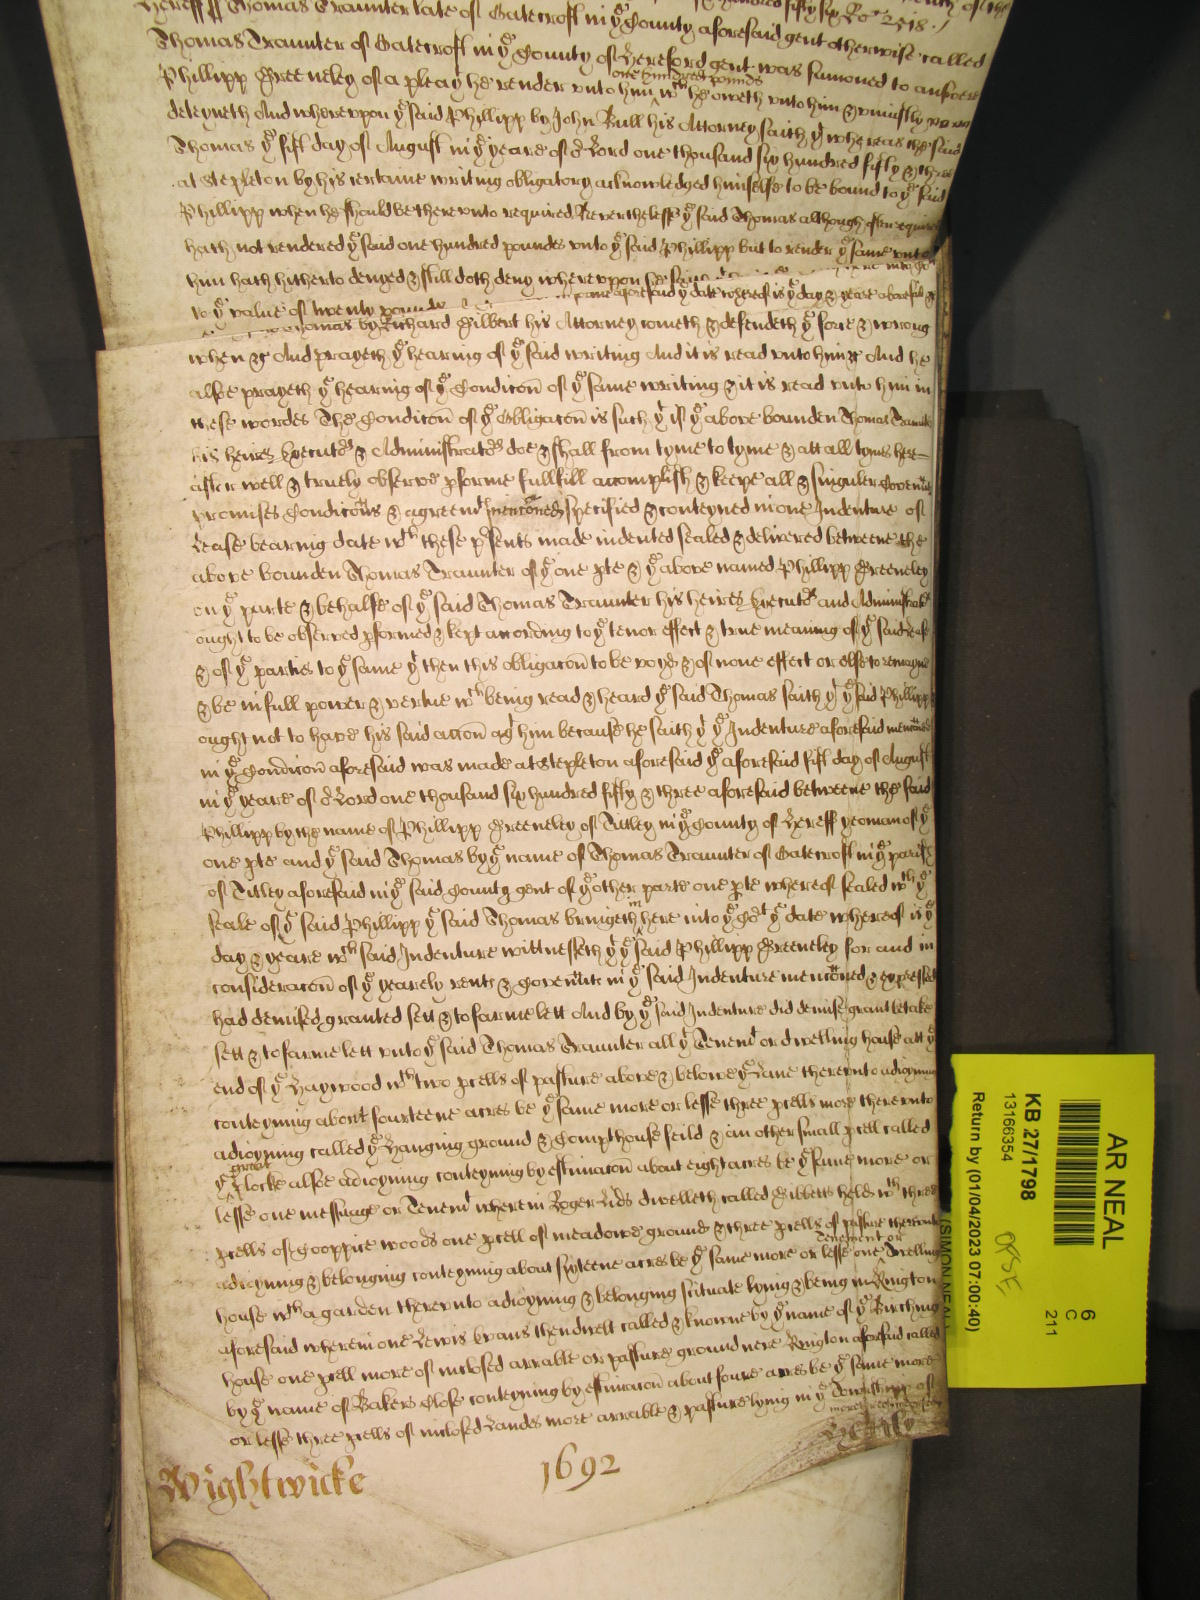 Hereff ss Thomas Traunter late of Gatecroft in yᵉ County aforesaid gent otherwise called
Thomas Traunter of Gatecroft in yᵉ County of Hereford gent was sumoned to answere
Phillipp Greeneley of a plea yᵗ he render vnto him one hundred pounds wᶜʰ he oweth vnto him & vniustly
deteyneth And wherevpon yᵉ said Phillipp by John Bull his Attorney saith yᵗ whereas the said
Thomas yᵉ fift day of August in yᵉ yeare of oʳ Lord one thousand six hundred fifty & three
at Stepleton by his certaine writing obligatory acknowledged himselfe to be bound to yᵉ said
Phillipp when he should be therevnto required Neverthelesse yᵉ said Thomas although often required
hath not rendered yᵉ said one hundred poundes vnto yᵉ said Phillipp but to render yᵉ same vnto
him hath hitherto denyed & still doth deny wherevpon he
to yᵉ value of twenty pounds aforesaid yᵉ date whereof is yᵉ day & yeare aforesaid &
Thomas by Richard Gilbert his Attorney cometh & defendeth yᵉ force & wrong
when &c And prayeth yᵉ hearing of yᵉ said writing And it is read vnto him &c And he
alsoe prayeth yᵉ hearing of yᵉ Condicon of yᵉ same writing & it is read vnto him in
these wordes The Condicon of yᵉ Obligacon is such yᵗ if yᵉ above bounden Thomas Traunter
his heires Executoʳˢ & Administratoʳˢ doe & shall from tyme to tyme & att all tymes here
after well & truely observe pforme fullfill accomplish & keepe all & singuler Covenᵗˢ
promises Condicons & agreemᵗˢ menconed specified & conteyned in one Indenture of
Lease bearing date wᵗʰ these psents made indented sealed & delivered betweene the
above bounden Thomas Traunter of yᵉ one pte & yᵉ above named Phillipp Greeneley
on yᵉ parte & behalfe of yᵉ said Thomas Traunter his heires Executoʳˢ and Administratoʳˢ
ought to be observed pformed & kept according to yᵉ tenor effect & true meaning of yᵉ said lease
& of yᵉ parties to yᵉ same yᵗ then this obligacon to be voyd & of none effect or else to remayne
& be in full power & vertue wᶜʰ being read & heard yᵉ said Thomas saith yᵗ yᵉ said Phillipp
ought not to have his said accon agᵗ him because he saith yᵗ yᵉ Indenture aforesaid menconed
in yᵉ Condicon aforesaid was made at Stepleton aforesaid yᵉ aforesaid fift day of August
in yᵉ yeare of oʳ Lord one thousand six hundred fifty & three aforesaid betweene the said
Phillipp by the name of Phillipp Greeneley of Titley in yᵉ County of Hereff yeoman of yᵉ
one pte and yᵉ said Thomas by yᵉ name of Thomas Traunter of Gatecroft in yᵉ parish
of Titley aforesaid in yᵉ said County gent of yᵉ other parte one pte whereof sealed wᵗʰ yᵉ
seale of yᵉ said Phillipp yᵉ said Thomas bringeth here into yᵉ Coᵗ yᵉ date whereof is yᵉ
day & yeare wᶜʰ said Indenture wittnesseth yᵗ yᵉ said Phillipp Greeneley for and in
consideracon of yᵉ yearely rents & Covenᵗˢ in yᵉ said Indenture menconed & expressed
had demised granted sett & to farme lett And by yᵉ said Indenture did demise grant betake
sett & to farme lett vnto yᵉ said Thomas Traunter all yᵗ Tenemᵗ or dwelling house att yᵉ
end of yᵉ Haywood wᵗʰ two pcells of pasture above & belowe yᵉ Lane therevnto adioyning
conteyning about fourteene acres be yᵉ same more or lesse three pcells more therevnto
adioyning called yᵉ Hanging ground & Compthouse feild & an other small pcell called
yᵉ great Flocke alsoe adioyning conteyning by estimacon about eight acres be yᵉ same more or
lesse one messuage or Tenemᵗ wherein Roger dwelleth called Gibbetts held wᵗʰ three
pcells of Cooppice woods one pcell of meadowe ground & three pcells of pasture therevnto
adioyning & belonging conteyning about sixteene acres be yᵉ same more or lesse one Tenement or Dwelling
house wᵗʰ a garden therevnto adioyning & belonging scituate lying & being in Kington
aforesaid wherein one Lewis Evans then dwelt called & knowne by yᵉ name of yᵉ Birching
house one pcell more of inclosed arrable or pasture ground nere Kington aforesaid called
by yᵉ name of Bakers Close conteyning by estimacon about foure acres be yᵉ same more
or lesse three pcells of inclosed Landes more arrable & pasture lying in yᵉ Towneshipp of
Wightwicke
1692
AR NEAL
6
C
211
KB 27/1798
13166354
Return by (01/04/2023 07:00:40)
(SIMON NEAL)